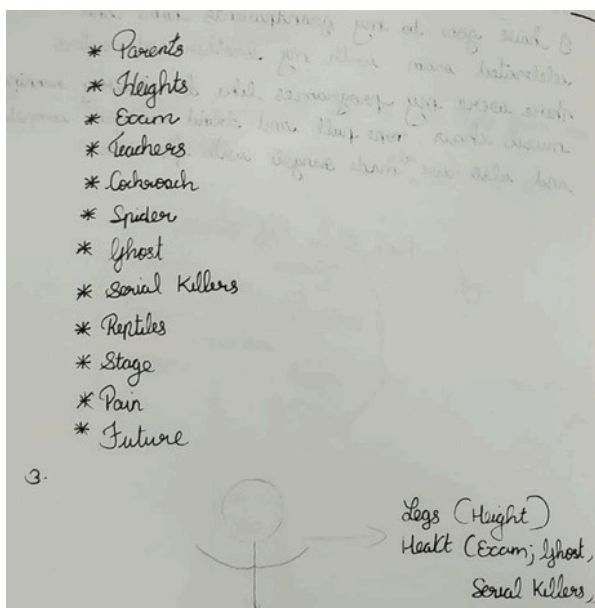 * Parents
* Heights
* Exam
* Teachers
* Cockroach
* Spider
* Ghost
* Serial Killers
* Reptiles
* Stage
* Pain
* Future
3.
Legs (Height)
Heakt (Exam; Ghost,
Serial Killers,